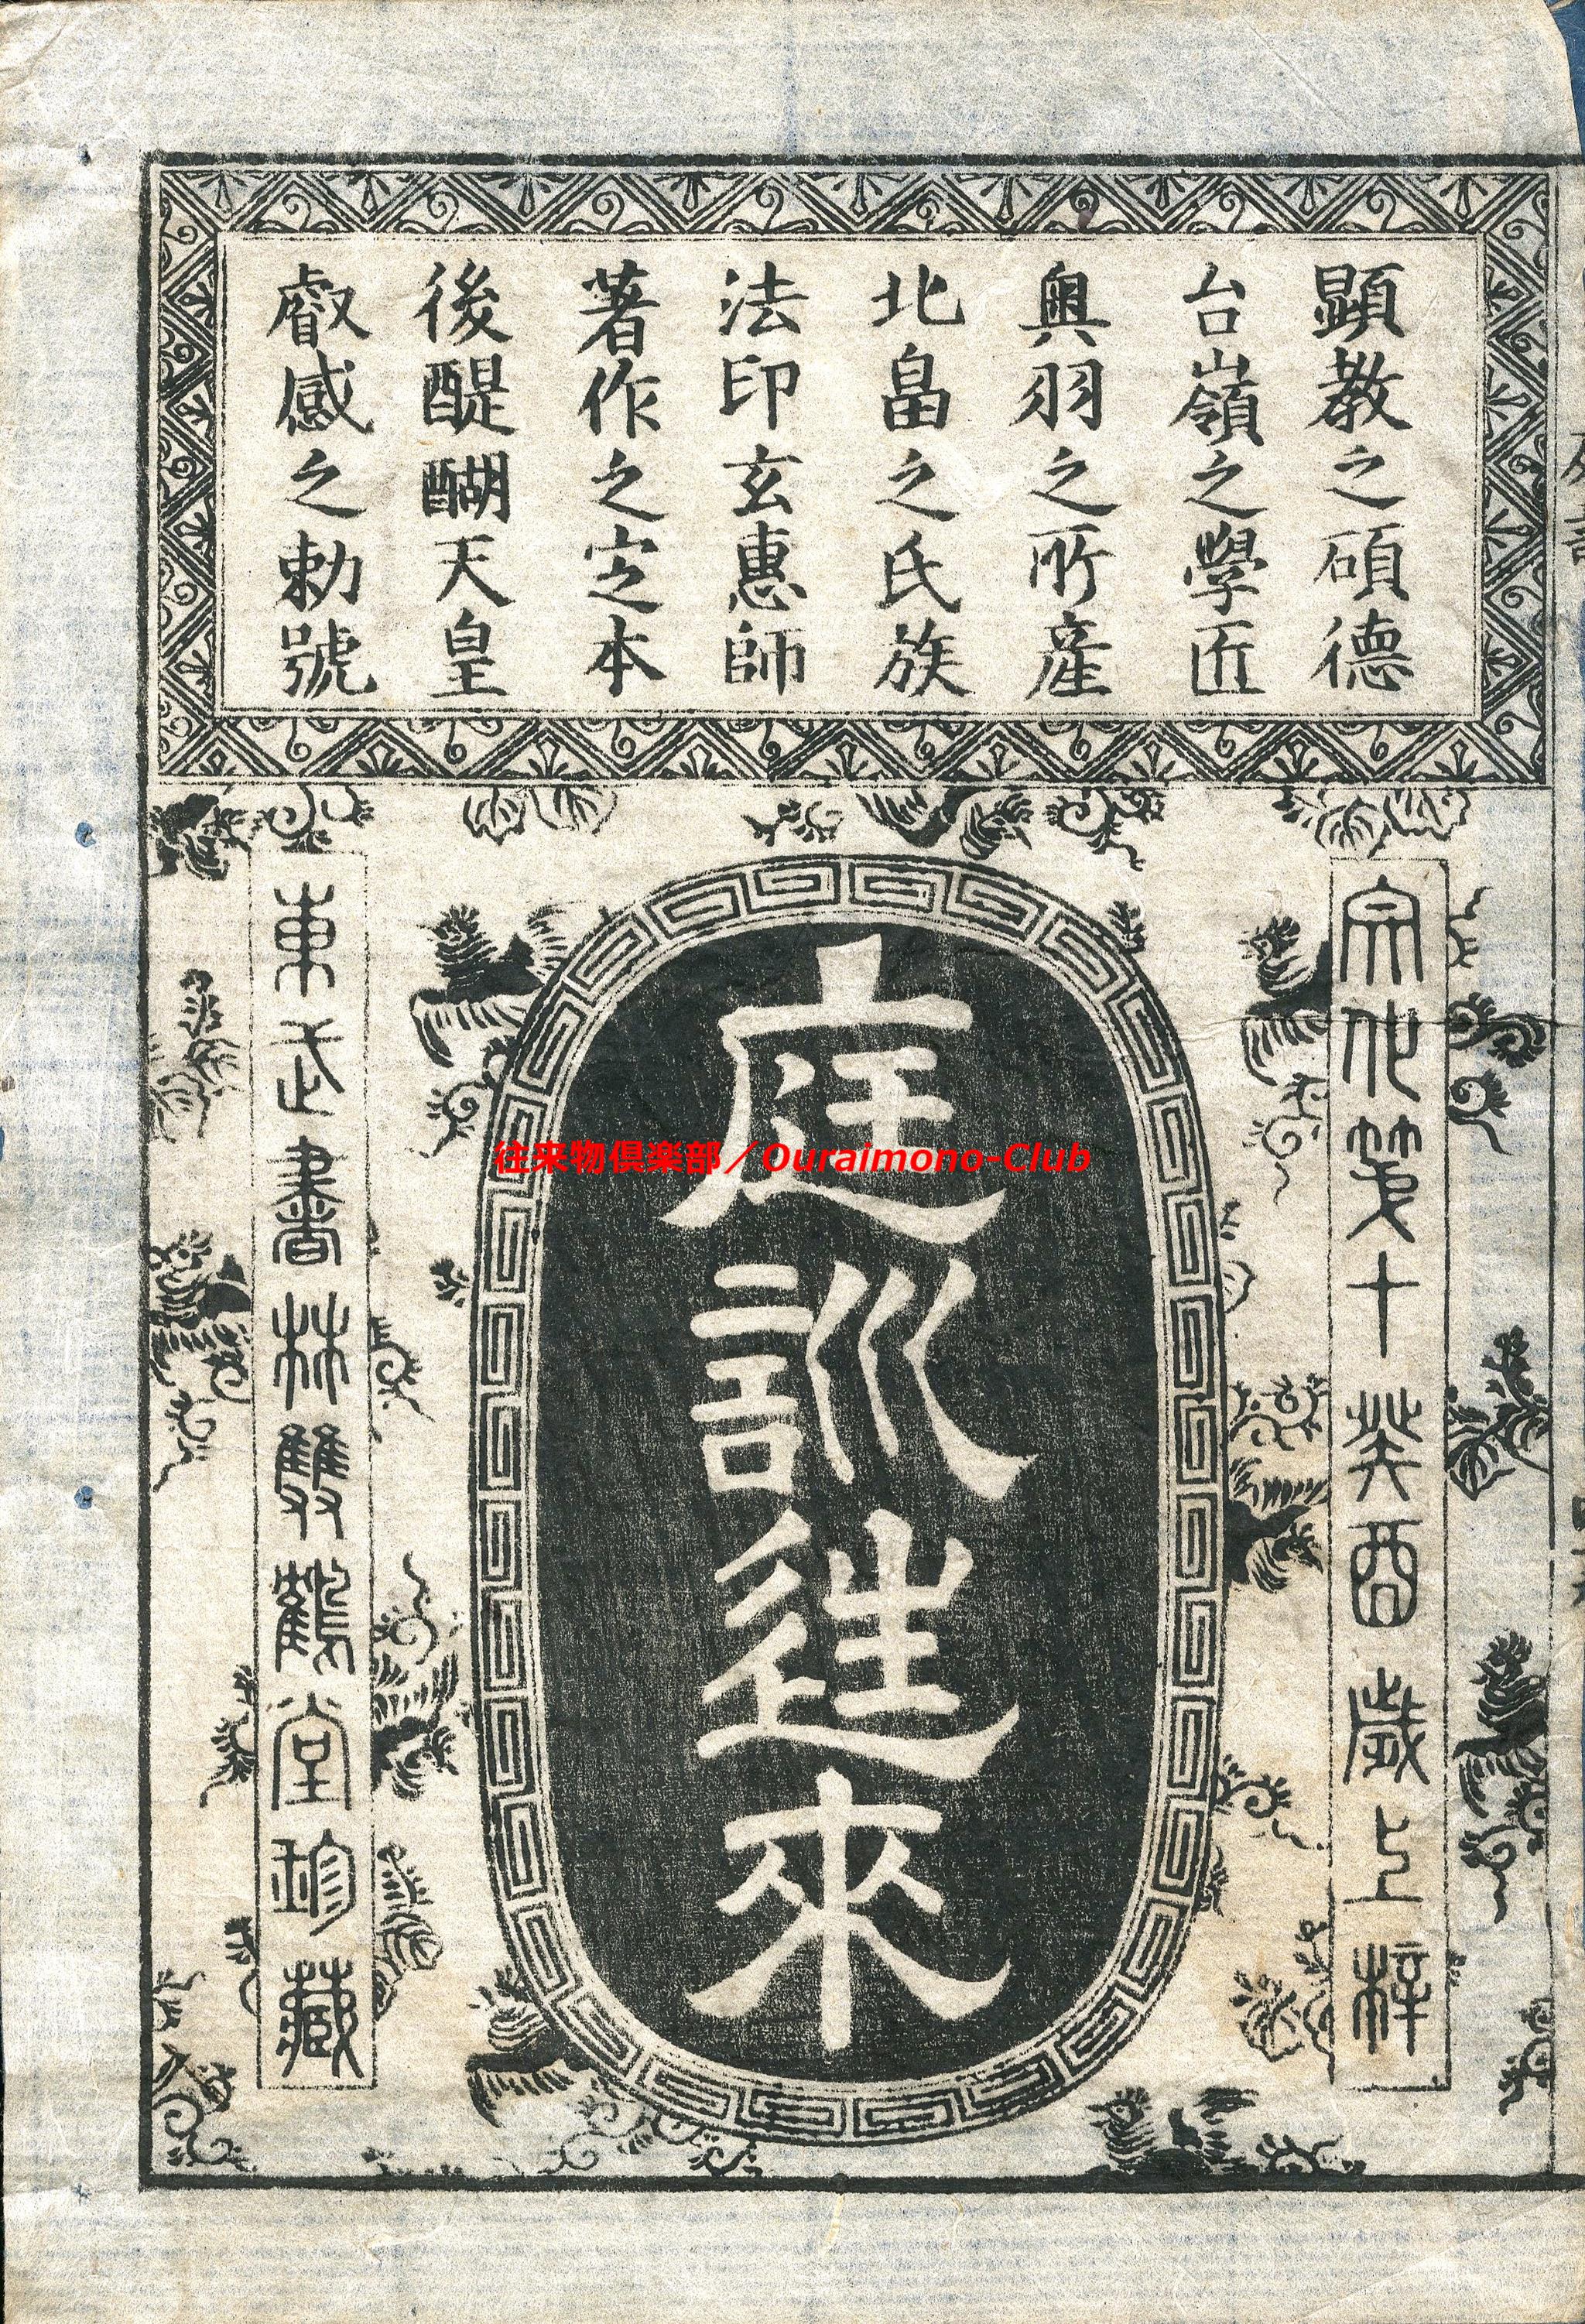 顕教之碩德
台嶺之學匠
奥羽之所産
北畠之氏族
法印玄惠師
著作之定本
後醍醐天皇
叡感之勅號
庭訓徃來
東武書林雙鶴堂珍藏
往来物倶楽部／Ouraimono-Club